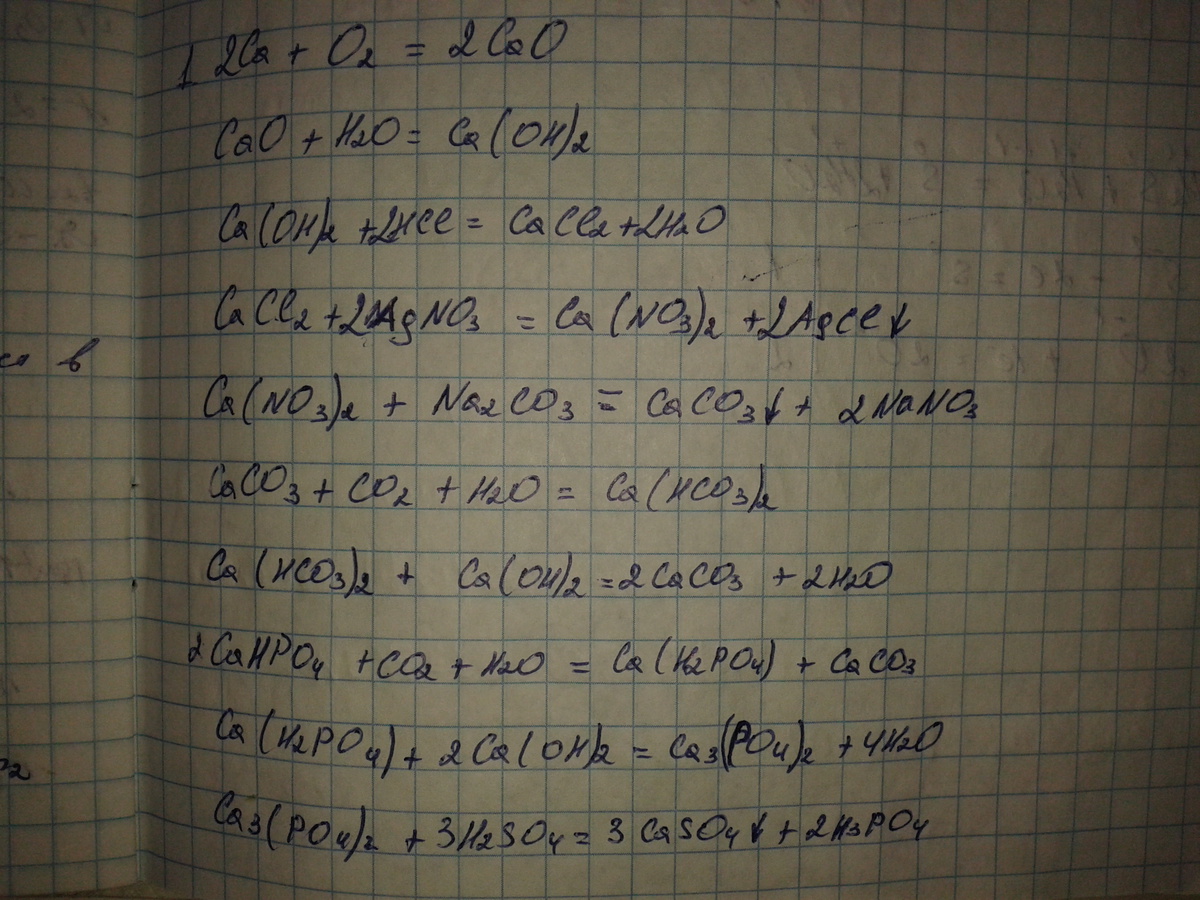 1 2Ca + O2 = 2CaO
CaO + H2O = Ca(OH)2
Ca(OH)2 + 2HCl = CaCl2 + 2H2O
CaCl2 + 2AgNO3 = Ca(NO3)2 + 2AgCl↓
в
Ca(NO3)2 + Na2CO3 = CaCO3↓ + 2NaNO3
CaCO3 + CO2 + H2O = Ca(HCO3)2
Ca(HCO3)2 + Ca(OH)2 = 2CaCO3 + 2H2O
2CaHPO4 + CO2 + H2O = Ca(H2PO4) + CaCO3
Ca(H2PO4) + 2Ca(OH)2 = Ca3(PO4)2 + 4H2O
Ca3(PO4)2 + 3H2SO4 = 3CaSO4↓ + 2H3PO4